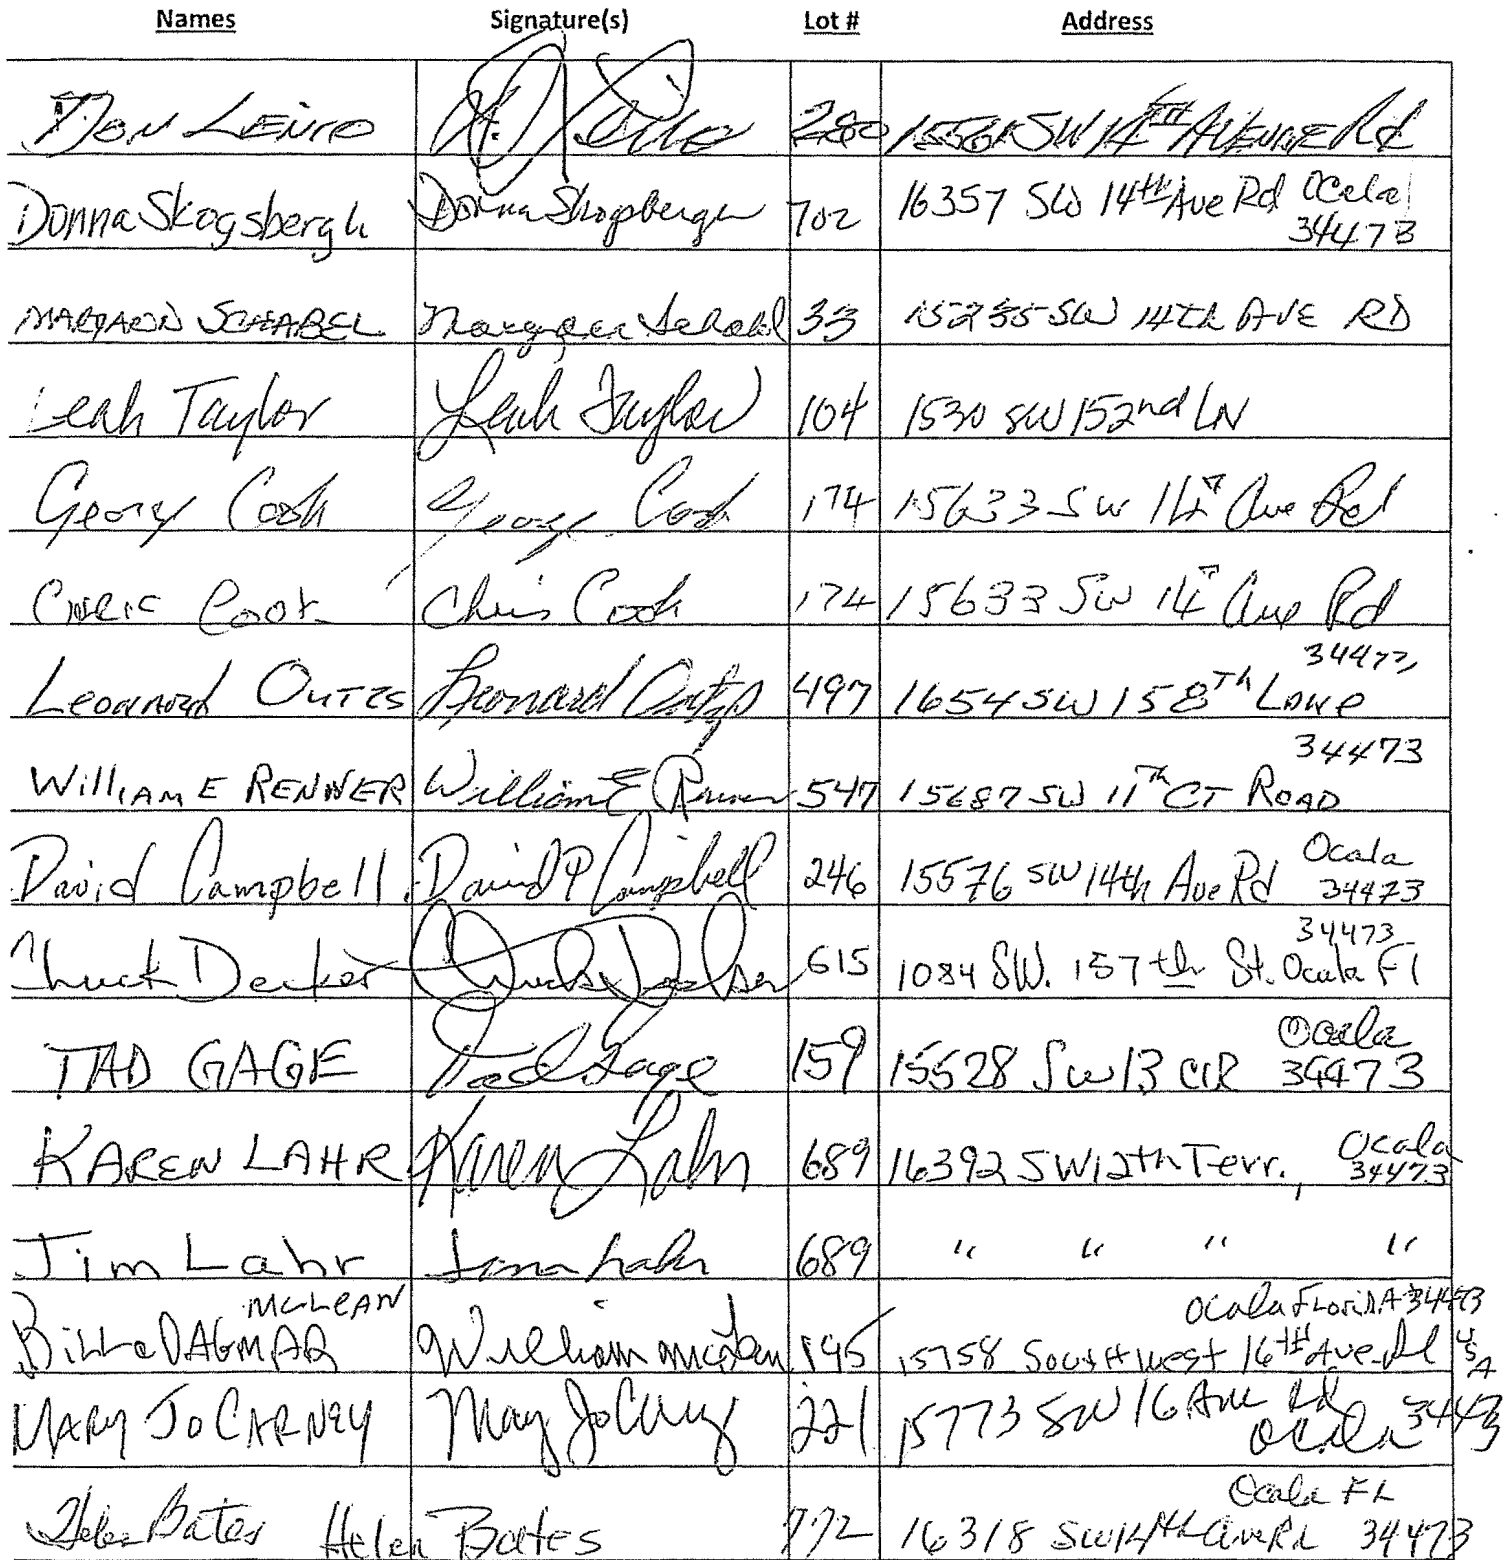 Names Signature(s) Lot # Address
DON LENTO 280 15561 SW 14TH AVENUE Rd
Donna Skogsbergh Donna Skogsbergh 702 16357 SW 14th Ave Rd Ocala
34473
MARYANN SCHABEL 33 15235 SW 14th AVE RD
Leah Taylor Leah Taylor 104 1530 SW 152nd LN
Cook George Cook 174 15633 SW 14T Ave Rd
Cook Chris Cook 174 15633 SW 14T Ave Rd
34473
Leonard OUTES Leonard 497 1654 SW 158Th Lane
34473
William E RENNER William E Renner 547 15687 SW 11Th CT ROAD
David Campbell David P Campbell 246 15576 SW 14th Ave Rd Ocala
34473
34473
Chuck Decker Chuck Decker 615 1084 SW. 157th St. Ocala Fl
Ocala
TAD GAGE Tad Gage 159 15528 SW 13 CIR 34473
KAREN LAHR Karen Lahr 689 16392 SW 12th Terr., Ocala
34473
Jim Lahr 689 " " " "
McLEAN Ocala FLORIDA 34473
Bill & DAGMAR William McLean 195 15758 SouthWest 16TH Ave. Rd USA
MARY JO CARNEY 221 15773 SW 16 Ave Rd
Ocala 34473
Ocala FL
Helen Bates Helen Bates 772 16318 SW 14th Ave Rd 34473